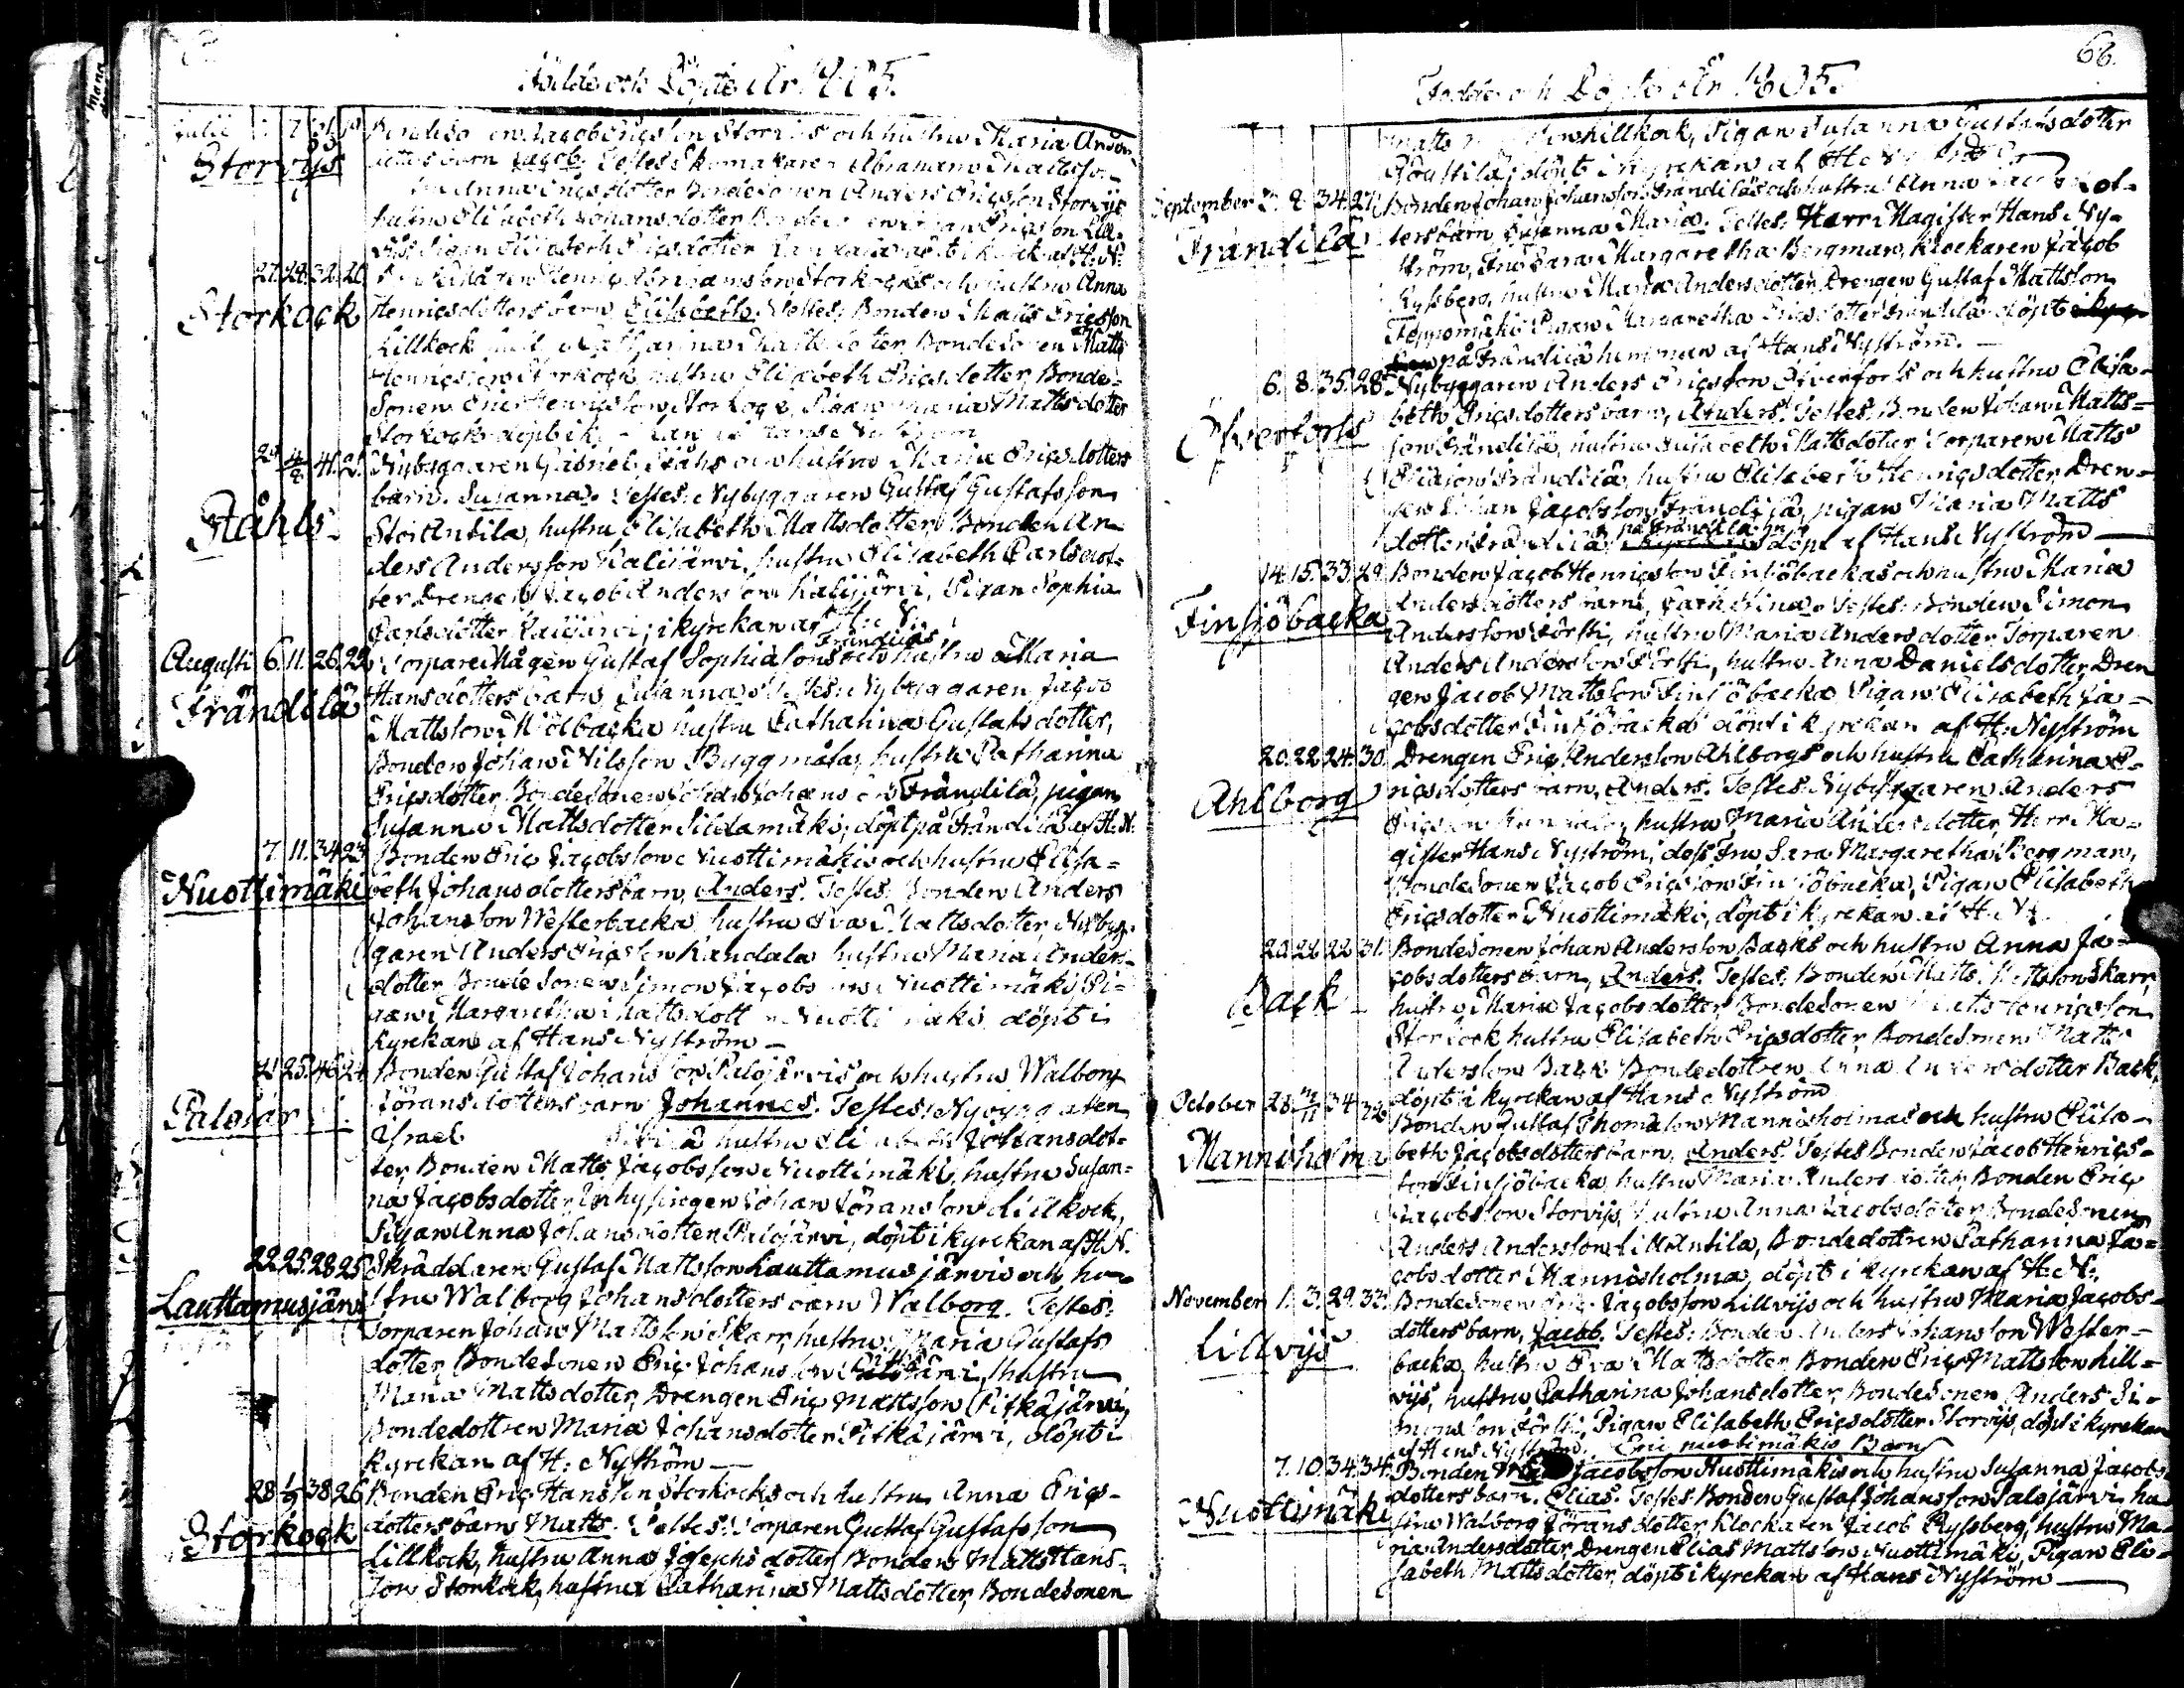 Födde och Döpte År 1805.
Julii 7 21
Storvijs
Bondeso en Jacob Ericsson Storvijs och hustru Maria Anders
dotters barn Jacob. Testes Skomakaren Abraham Mattsson
Anna Ericsdotter Bondesonen Anders Ericsson Storvijs
hustru Elisabeth Johansdotter
27. 28. 32. 20.
Storkock
Henric Abrahamsson Storkocks och hustru Anna
Henricsdotters barn Elisabeth. Testes: Bonden Matts Ericsson
Lillkock Catharina Mattsdotter, Bondesonen Matts
Henricsson Storkock, hustru Elisabeth Ericsdotter, Bonde-
sonen Eric Henricsson Storkock, Pigan Maria Mattsdotter
Storkock
29 4/8 41. 21.
Ståhls
Nybyggaren Gabriel Ståhls och hustru Maria Ericsdotters
barn. Susanna. Testes: Nybyggaren Gustaf Gustafsson
StorAntila, hustru Elisabeth Mattsdotter, Bonden An-
ders Andersson Kalijärvi, hustru Elisabeth Carlsdot-
ter Drengen Jacob Andersson Kalijärvi, Pigan Sophia
Carlsdotter Kalijärvi; i kyrekan af
Augusti 6. 11. 26. 22.
Frändilä
Frändiläs
TorpareMågen Gustaf Sophiasons och hustru Maria
Hansdotters barn Susanna. Testes: Nybyggaren Jacob
Mattsson Miölbacka hustru Catharina Gustafsdotter,
Bonden Johan Nilsson Byggmäsa, hustru Catharina
Ericsdotter, Bondesonen Johan Johansson Frändilä, pigan
Susanna Mattsdotter Sildamäki, döpt på Frändilä af H. N.
7. 11. 34. 23.
Nuottimäki
Bonden Eric Jacobsson Nuottimäkis och hustru Elisa-
beth Johansdotters barn, Anders. Testes: Bonden Anders
Johansson Westerbacka hustru Eva Mattsdotter, Nybyg-
garen Anders Ericsson Kandala hustru Maria Anders-
dotter, Bondesonen Simon Jacobsson Nuottimäki, Pi-
gan Margaretha Mattsdott Nuottimäki döpt i
kyrekan af Hans Nyström
25. 46. 24
Bonden Gustaf Johansson Palojärvis och hustru Walborg
Jöransdotters barn Johannes. Testes: Nybyggaren
Israel hustru Elisabeth Johansdot-
ter, Bonden Matts Jacobsson Nuottimäki, hustru Susan-
na Jacobsdotter, Inhysingen Johan Jöransson Lillkock,
Pigan Anna Johansdotter Palojärvi, döpt i kyrekan af H. N.
22. 25. 28. 25
Lauttamusjärvi
Skräddaren Gustaf Mattsson Lauttamusjärvis och hu-
stru Walborg Johansdotters barn Walborg. Testes:
Torparen Johan Mattsson Skarr, hustru Maria Gustafs
dotter, Bondesonen Eric Johansson hustru
Maria Mattsdotter, Drengen Eric Mattsson Pitkäjärvi,
Bondedottren Maria Johansdotter Pitkäjärvi, döpt i
kyrekan af H: Nyström
28 1/9 38. 26
Storkock
Bonden Eric Hansson Storkocks och hustru Anna Erics-
dotters barn Matts. Testes: Torparen Gustaf Gustafsson
Lillkock, hustru Anna Josephsdotter, Bonden Matts Hans-
son Storkock, hustru Catharina Mattsdotter, Bondesonen
66.
Födde och Döpte År 1805.
Matts Lillkock, Pigan Susanna Gustafsdotter
döpt i kyrekan af
September 2. 8. 34. 27.
Frändilä
Bonden Johan Johansson Frändiläs och hustru Anna Jacobsdot-
ters barn Susanna Maria. Testes: Herr Magister Hans Ny-
ström, Fru Sara Margaretha Bergman, Klockaren Jacob
Ryssberg, hustru Maria Andersdotter, Drengen Gustaf Mattsson
Pigan Margaretha Ericsdotter Frändilä döpt
på Frändilä hemman af Hans Nyström.
6. 8. 35. 28.
Ofverfors
Nybyggaren Anders Ericsson Ofverfors och hustru Elisa-
beth Ericsdotters barn, Anders. Testes: Bonden Johan Matts-
son Frändilä, hustru Elisabeth Mattsdotter Torparen Matts
Eliasson Frändilä, hustru Elisabeth Henricsdotter, Dren-
gen Johan Jacobsson Frändilä, pigan Maria Matts
på Frändilä
dotter Frändilä, döpt af Hans Nyström
14. 15. 33. 29.
Finsjöbacka
Bonden Jacob Henricsson Finsjöbackas och hustru Maria
Andersdotters barn, Catharina. Testes: Bonden Simon
Andersson Försti, hustru Maria Andersdotter, Torparen
Anders Andersson Försti, hustru Anna Danielsdotter, Dren
gen Jacob Mattsson Finsjöbacka Pigan Elisabeth Ja-
cobsdotter Finsjöbacka döpt i kyrekan af H. Nyström
20. 22. 24. 30.
Ahlborg
Drengen Eric Andersson Ahlborgs och hustru Catharina E-
ricsdotters barn, Anders. Testes: Nybyggaren Anders
Ericsson hustru Maria Andersdotter, Herr Ma-
gister Hans Nyström, dess fru Sara Margaretha Bergman,
Bondesonen Jacob Ericsson Finsjöbacka, Pigan Elisabeth
Ericsdotter Nuottimäki, döpt i kyrekan af H. N.
20. 22. 22. 31.
Back
Bondesonen Johan Andersson Backs och hustru Anna Ja-
cobsdotters barn, Anders. Testes: Bonden Matts Mattsson Skarr,
hustru Maria Jacobsdotter, Bondesonen Matts Henricsson
Storkock hustru Elisabeth Ericsdotter Bondesonen Matts
Andersson Back Bondedottren Anna Andersdotter Back,
döpt i kyrekan af Hans Nyström
October 28 34 32
Mannisholma
Bonden Gustaf Thomasson Mannisholmas och hustru Elisa-
beth Jacobsdotters barn, Anders. Testes Bonden Jacob Henrics-
son Finsjöbacka, hustru Maria Andersdotter, Bonden Eric
Jacobsson Storvijs, hustru Anna Jacobsdotter, Bondesonen
Anders Andersson LillAntila, Bondedottren Catharina Ja-
cobsdotter Mannisholma, döpt i kyrekan af H. N.
November 1. 3. 29. 33.
Lillvijs
Bondesonen Eric Jacobsson Lillvijs och hustru Maria Jacobs-
dotters barn, Jacob. Testes: Bonden Anders Johansson Wester-
backa, hustru Eva Mattsdotter, Bonden Eric Mattsson Lill-
vijs, hustru Catharina Johansdotter, Bondesonen Anders Si-
monsson Försti, Pigan Elisabeth Ericsdotter Storvijs, döpt i kyrekan
af Hans Nyström. Eric nuottimäkis Barn
7. 10. 34. 34.
Nuottimäki
Bonden Jacobsson Nuottimäkis och hustru Susanna Jacobs
dotters barn. Elias. Testes Bonden Gustaf Johansson Palojärvi hu
stru Walborg Jöransdotter, Klockaren Jacob Ryssberg, hustru Ma-
ria Andersdotter, Drengen Elias Mattsson Nuottimäki, Pigan Eli-
sabeth Mattsdotter, döpt i kyrekan af Hans Nyström